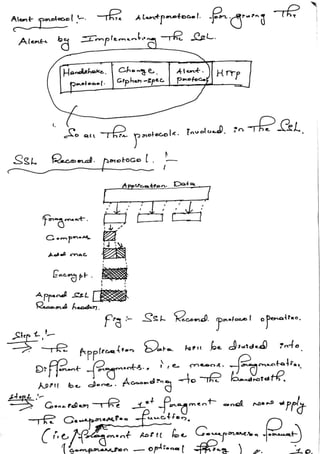 Alert protocol :- This Alert protocol. for giving The
Alerts by Implementing The SSL.
Handshake protocol. Change Cipher-spec Alert. protocol HTTP
So all This protocols. Involved. in The SSL.
SSL Record. protocol :-
Application Data
fragment.
Compress
Add mac
Encrypt.
Append SSL
Record header.
fig :- SSL Record protocol operation.
Step 1 :-
The Application Data will be divided into
Different fragments., i.e means. fragmentation
will be done. According to The bandwidth.
Step 2 :-
Consider The 1st fragment and apply
The Compression function.
(i.e fragment will be Compression format)
(Compression — optional thing)